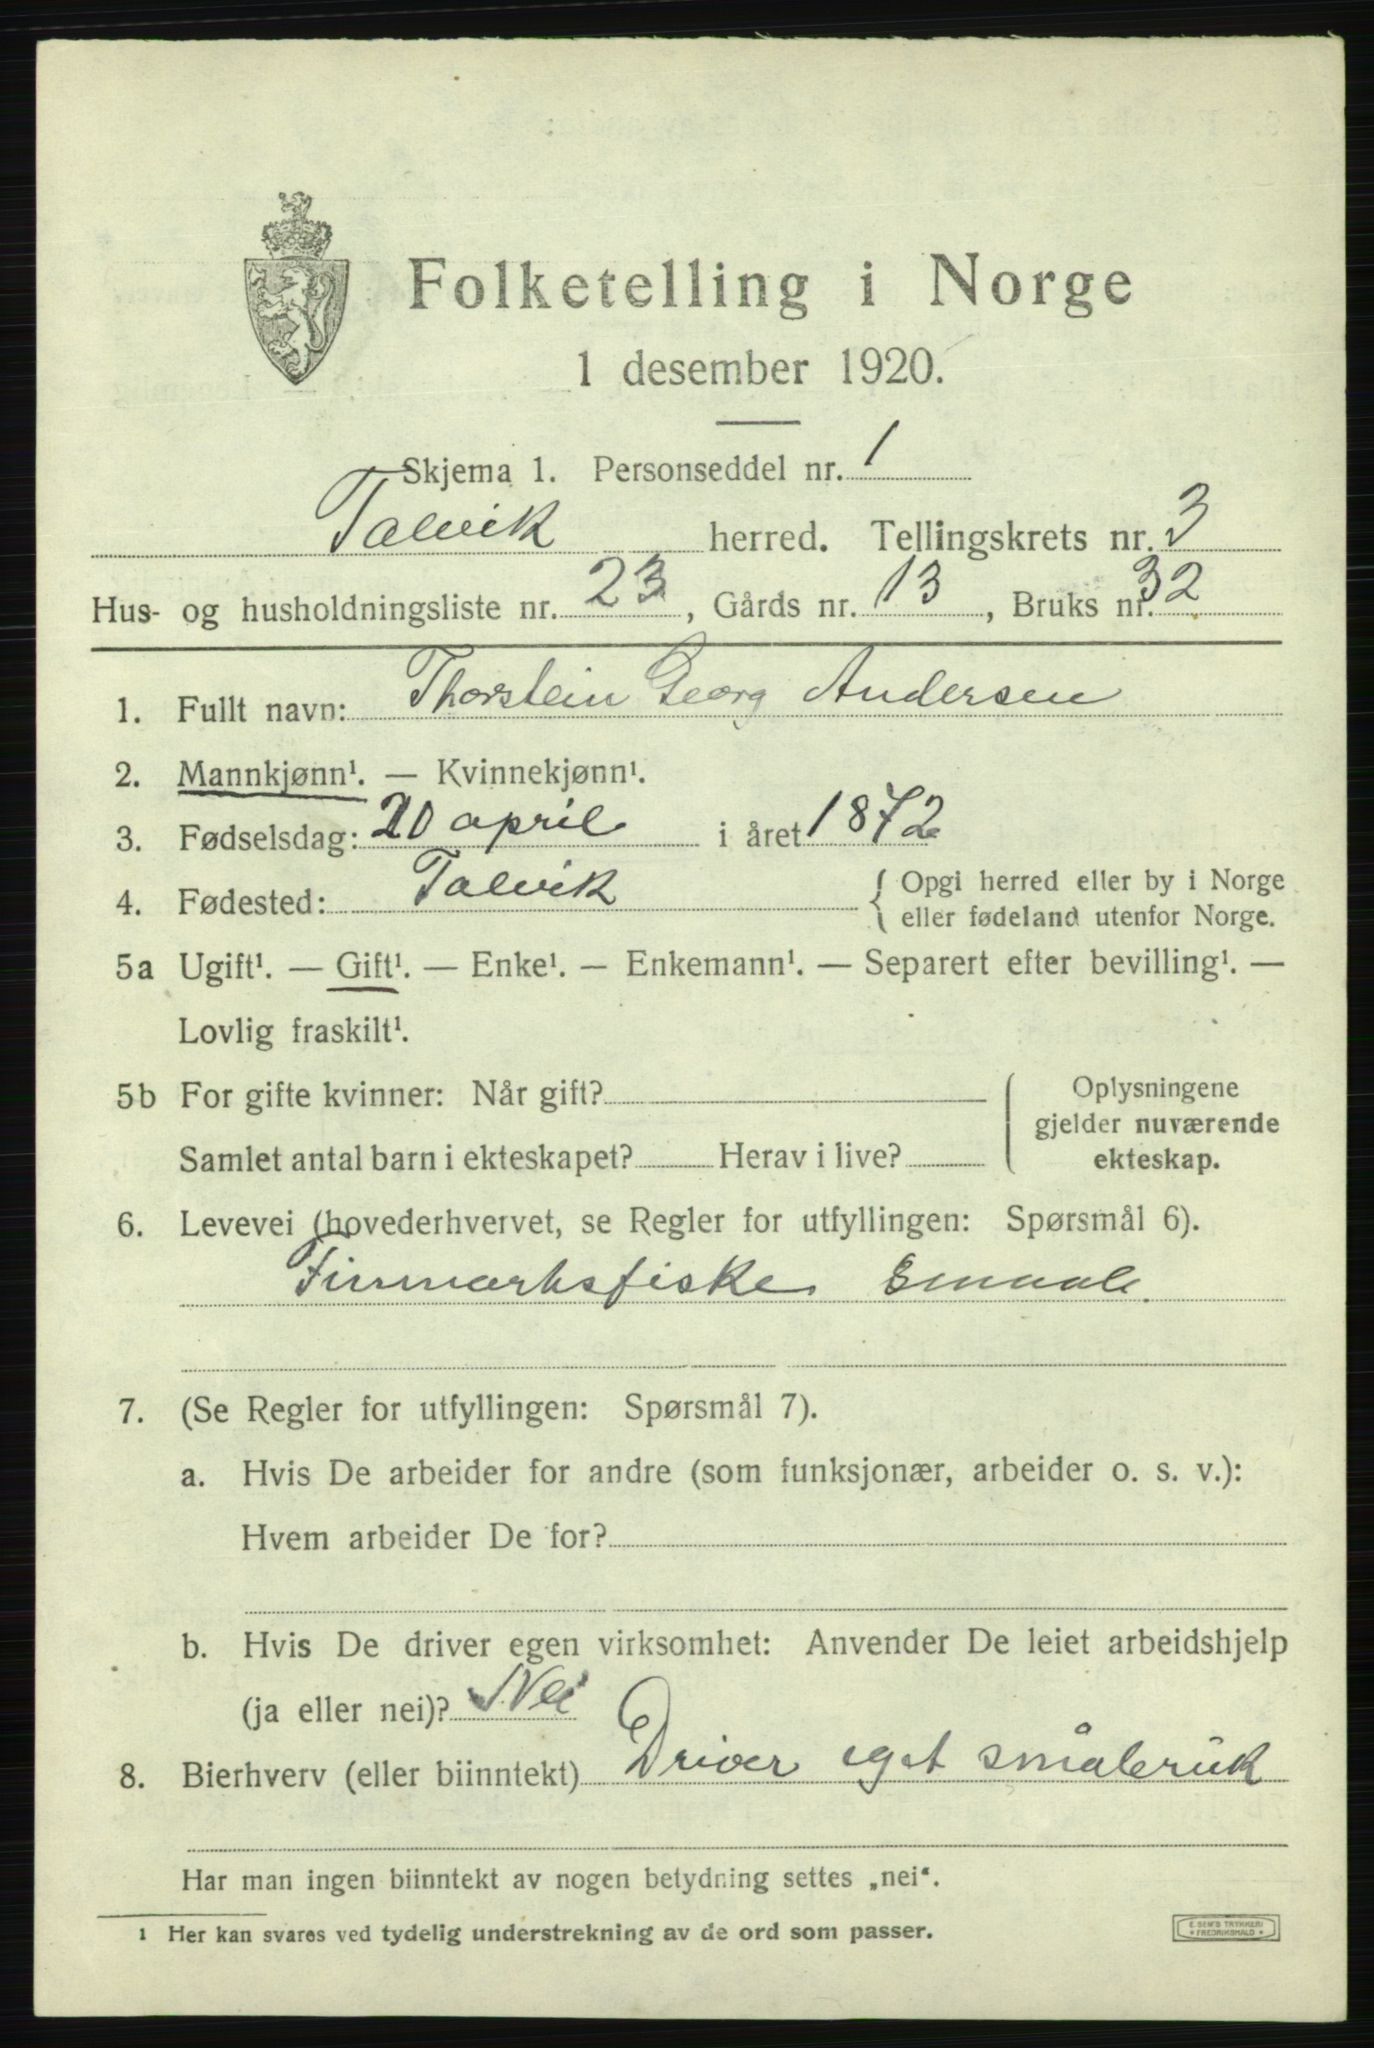 Folketelling i Norge
1 desember 1920.
Skjema 1. Personseddel nr. 1
Talvik herred. Tellingskrets nr. 3
Hus- og husholdningsliste nr. 23, Gårds nr. 13, Bruks nr. 32
1. Fullt navn: Thorstein Georg Andersen
2. Mannkjønn¹. — Kvinnekjønn¹.
3. Fødselsdag: 20 april i året 1872
4. Fødested: Talvik { Opgi herred eller by i Norge
eller fødeland utenfor Norge.
5a Ugift¹. — Gift¹. — Enke¹. — Enkemann¹. — Separert efter bevilling¹. —
Lovlig fraskilt¹.
5b For gifte kvinner: Når gift?
Samlet antal barn i ekteskapet? Herav i live?
Oplysningene
gjelder nuværende
ekteskap.
6. Levevei (hovederhvervet, se Regler for utfyllingen: Spørsmål 6).
Finmarksfiske
7. (Se Regler for utfyllingen: Spørsmål 7).
a. Hvis De arbeider for andre (som funksjonær, arbeider o. s. v.):
Hvem arbeider De for?
b. Hvis De driver egen virksomhet: Anvender De leiet arbeidshjelp
(ja eller nei)? Nei
8. Bierhverv (eller biinntekt) Driver eget småbruk
Har man ingen biinntekt av nogen betydning settes „nei“.
¹ Her kan svares ved tydelig understrekning av de ord som passer.
E. SEM'S TRYKKERI
* FREDRIKSHALD *